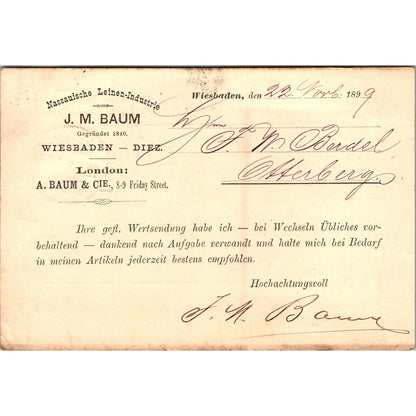 Nassauische Leinen-Industrie
J. M. BAUM
Gegründet 1840.
WIESBADEN — DIEZ.
London:
A. BAUM & CIE., 8-9 Friday Street.
Wiesbaden, den 22 Novb. 1899
F. W. Bendel
Otterberg
Ihre gefl. Wertsendung habe ich — bei Wechseln Übliches vor-
behaltend — dankend nach Aufgabe verwandt und halte mich bei Bedarf
in meinen Artikeln jederzeit bestens empfohlen.
Hochachtungsvoll
J. M. Baum